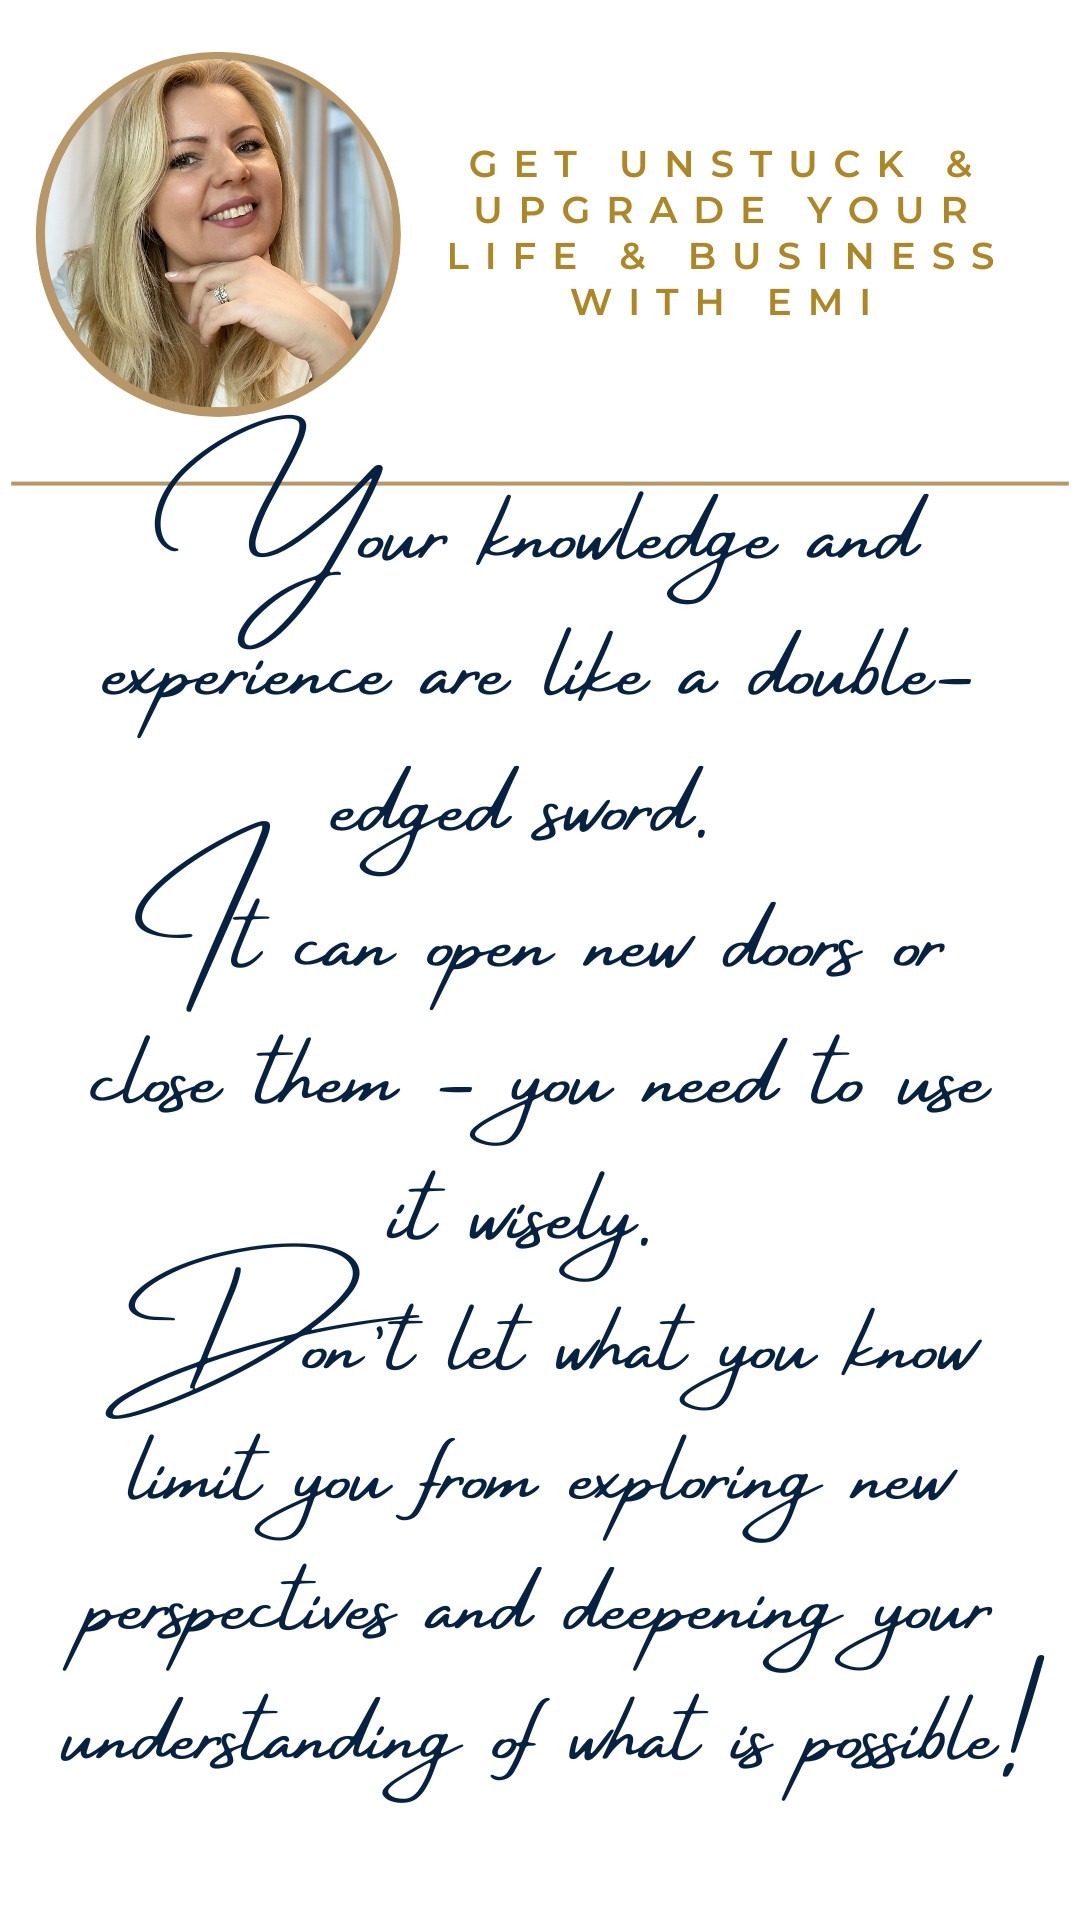 GET UNSTUCK &
UPGRADE YOUR
LIFE & BUSINESS
WITH EMI
Your knowledge and
experience are like a double-
edged sword.
It can open new doors or
close them - you need to use
it wisely.
Don't let what you know
limit you from exploring new
perspectives and deepening your
understanding of what is possible!